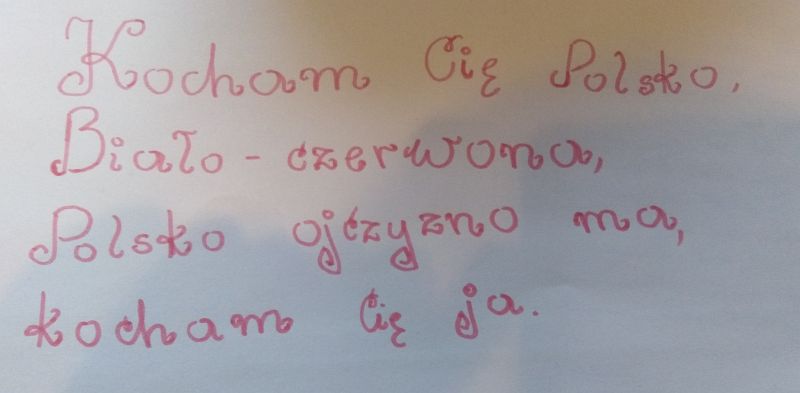 Kocham Cię Polsko,
Biało-czerwona,
Polsko ojczyzno ma,
kocham Cię ja.